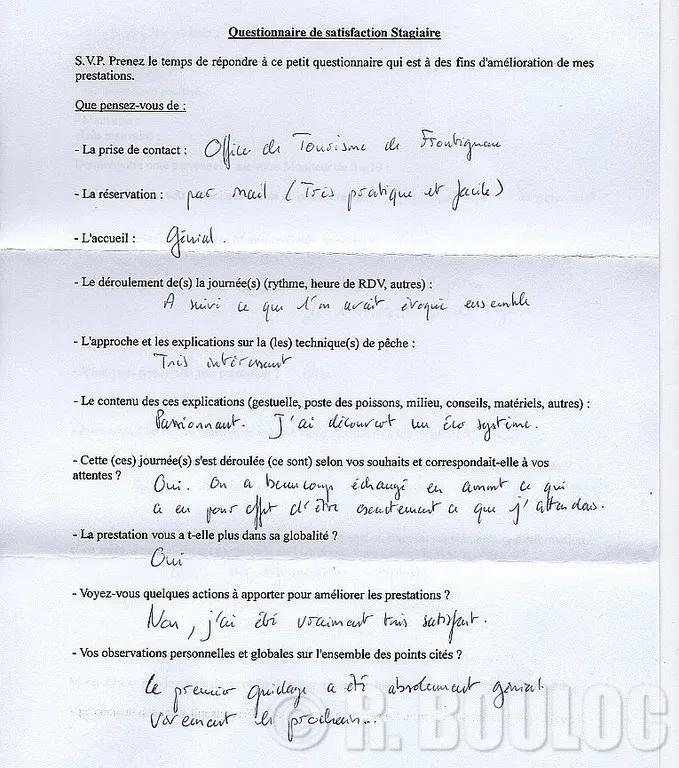 Questionnaire de satisfaction Stagiaire
S.V.P. Prenez le temps de répondre à ce petit questionnaire qui est à des fins d'amélioration de mes
prestations.
Que pensez-vous de :
- La prise de contact : Office de Tourisme de Frontignan
- La réservation : par mail (Très pratique et facile)
- L'accueil : Génial.
- Le déroulement de(s) la journée(s) (rythme, heure de RDV, autres) :
A suivi ce que l'on avait évoqué ensemble
- L'approche et les explications sur la (les) technique(s) de pêche :
Très intéressant
- Le contenu des ces explications (gestuelle, poste des poissons, milieu, conseils, matériels, autres) :
Passionnant. J'ai découvert un éco système.
- Cette (ces) journée(s) s'est déroulée (ce sont) selon vos souhaits et correspondait-elle à vos
attentes ?
Oui. On a beaucoup échangé en amont ce qui
a eu pour effet d'être exactement ce que j'attendais.
- La prestation vous a t-elle plus dans sa globalité ?
Oui
- Voyez-vous quelques actions à apporter pour améliorer les prestations ?
Non, j'ai été vraiment très satisfait.
- Vos observations personnelles et globales sur l'ensemble des points cités ?
Le premier guidage a été absolument génial.
Vivement le prochain...
© R. BOULOC